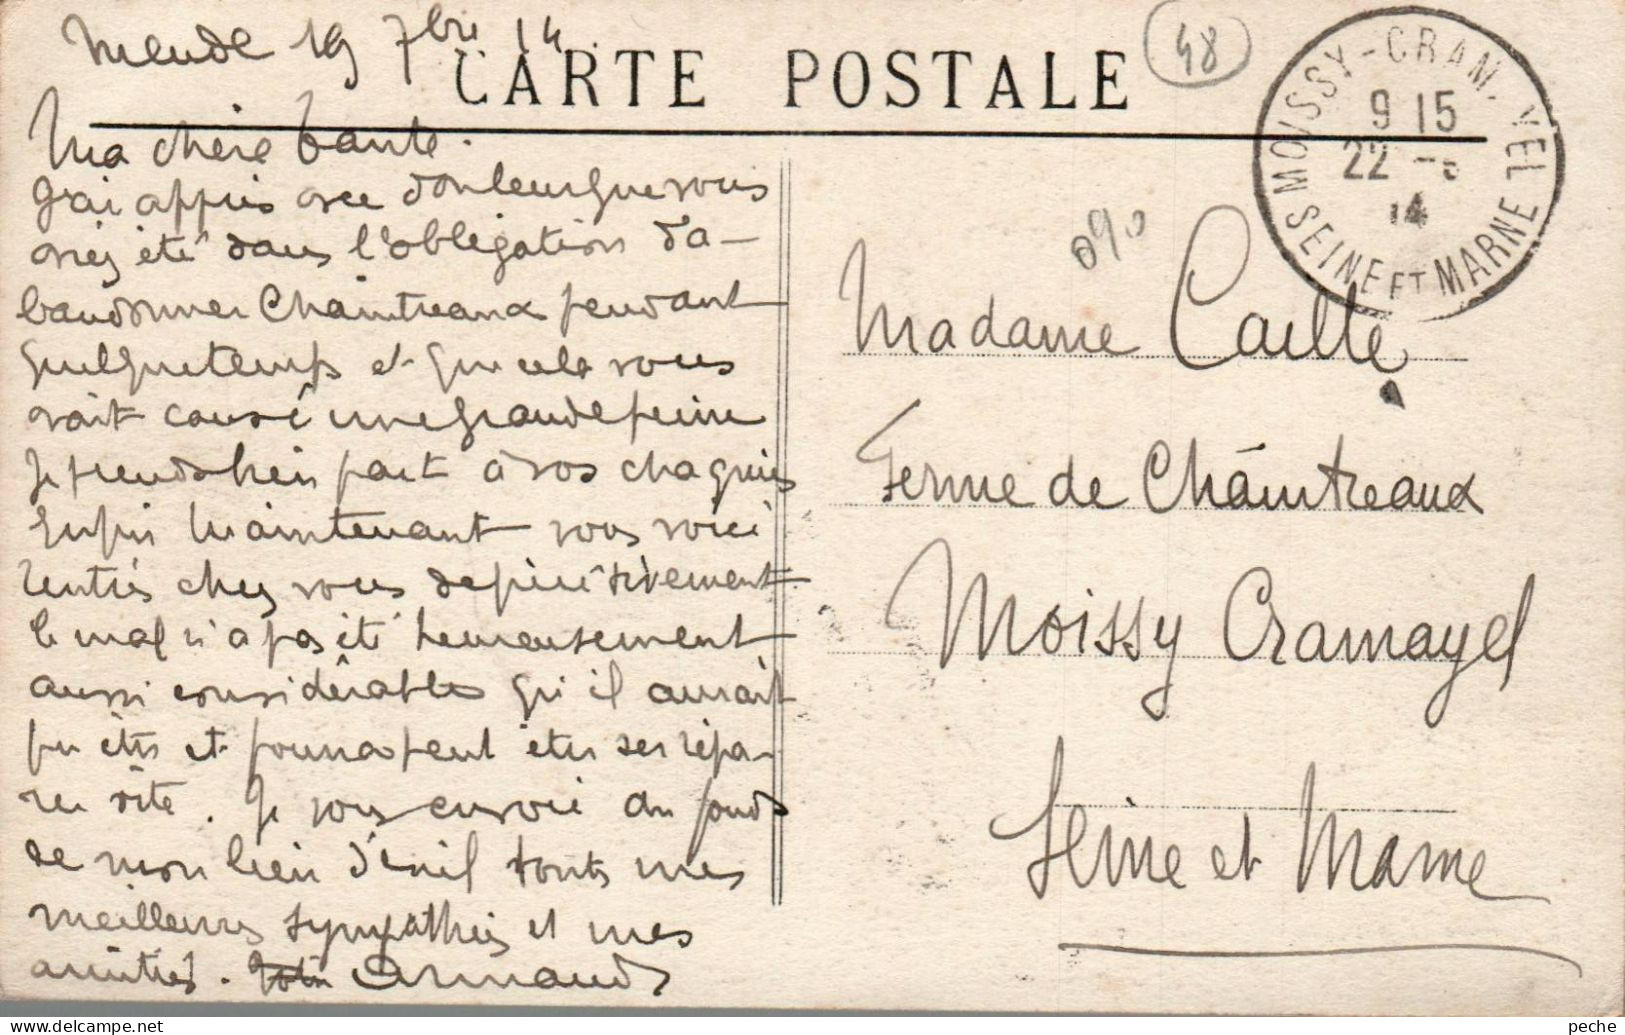 Mende 19 7bre 14.
CARTE POSTALE
48
Ma chère tante.
J'ai appris avec douleur que vous
aviez été dans l'obligation d'a-
bandonner Chaintreaux pendant
quelque temps et que cela vous
avait causé une grande peine
Je prends bien part à vos chagrins
Enfin maintenant vous voici
rentrés chez vous définitivement
le mal n'a pas été heureusement
aussi considérable qu'il aurait
pu être et pourra peut être se répa-
rer vite. Je vous envoie du fond
de mon lieu d'exil toutes mes
meilleures sympathies et mes
amitiés. Armand
MOISSY-CRAMAYEL
9 15
22 -
14
SEINE ET MARNE
090
Madame Caille
Ferme de Chaintreaux
Moissy Cramayel
Seine et Marne
peche